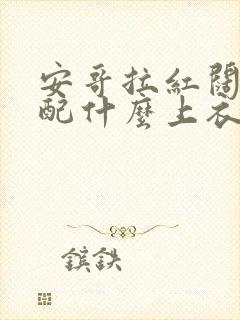 安哥拉紅闊
配什麼上衣
鑌鉄